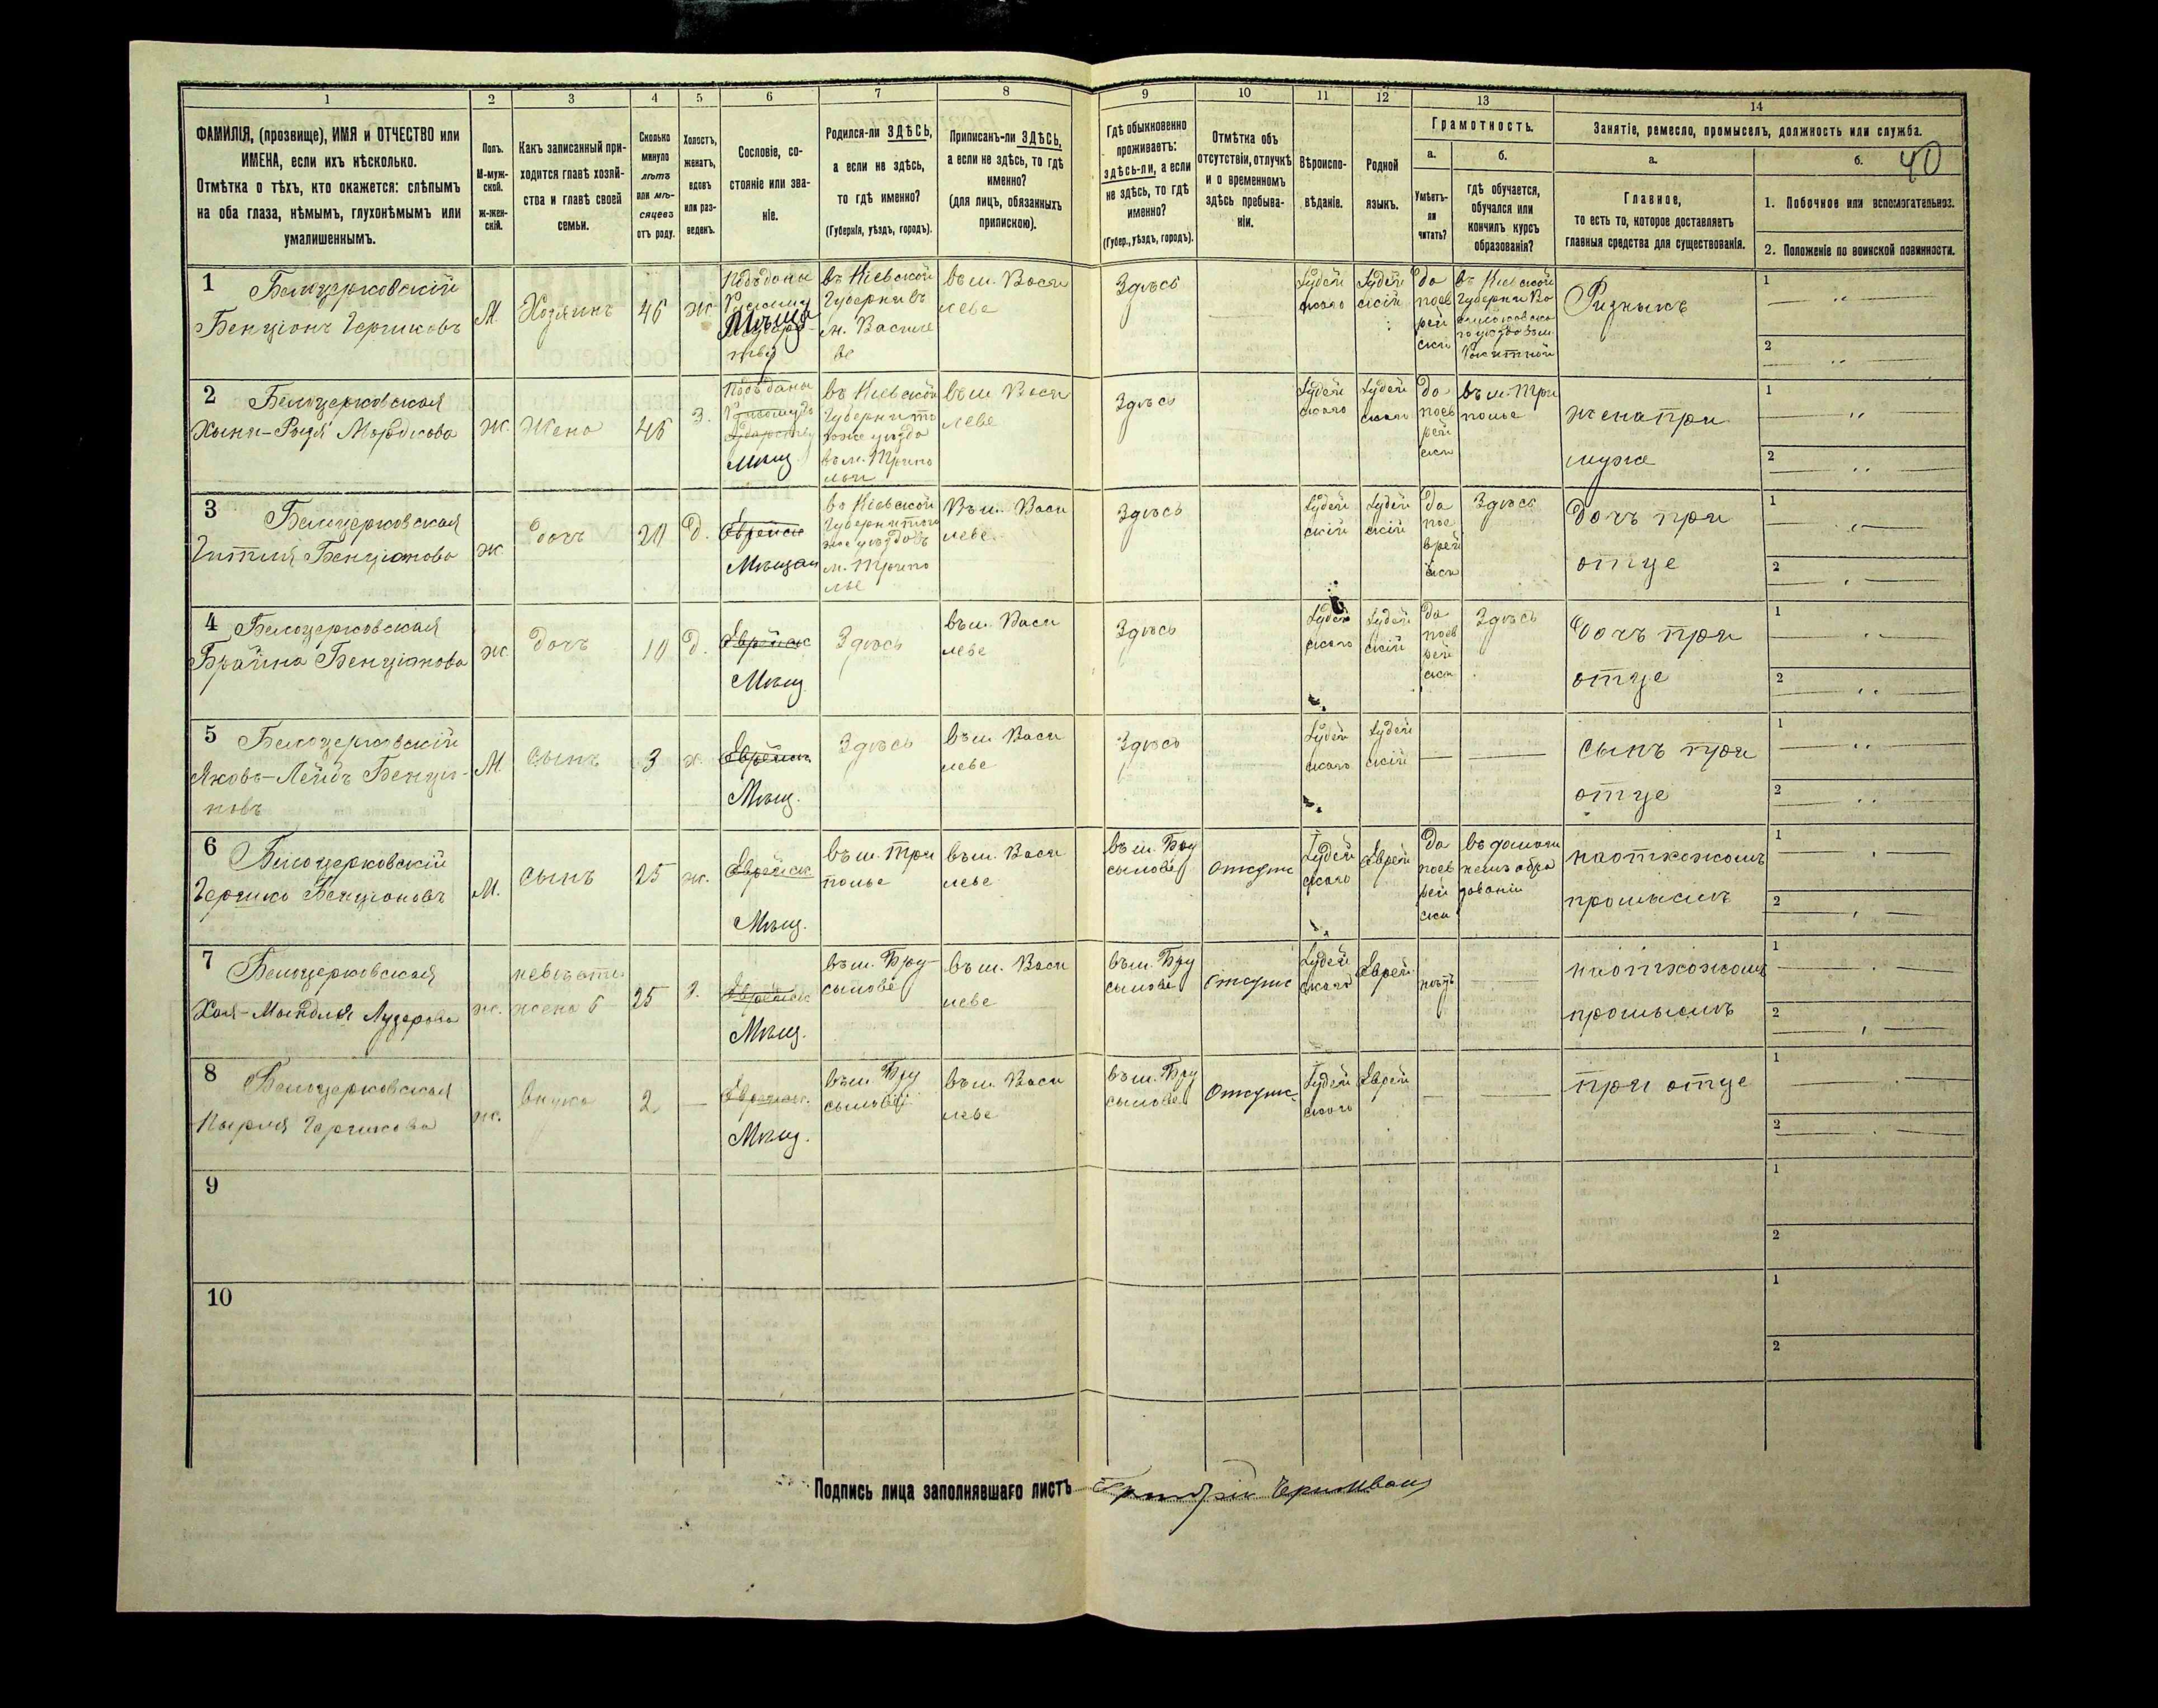 1 2 3 4 5 6 7 8 9 10 11 12 13 14
ФАМИЛІЯ, (прозвище), ИМЯ и ОТЧЕСТВО или
ИМЕНА, если ихъ нѣсколько.
Отмѣтка о тѣхъ, кто окажется: слѣпымъ
на оба глаза, нѣмымъ, глухонѣмымъ или
умалишеннымъ.
Полъ.
М-муж-
ской.
ж-жен-
скій.
Какъ записанный при-
ходится главѣ хозяй-
ства и главѣ своей
семьи.
Сколько
минуло
лѣтъ
или мѣ-
сяцевъ
отъ роду.
Холостъ,
женатъ,
вдовъ
или раз-
веденъ.
Сословіе, со-
стояніе или зва-
ніе.
Родился-ли ЗДѢСЬ,
а если не здѣсь,
то гдѣ именно?
(Губернія, уѣздъ, городъ).
Приписанъ-ли ЗДѢСЬ,
а если не здѣсь, то гдѣ
именно?
(для лицъ, обязанныхъ
припискою).
Гдѣ обыкновенно
проживаетъ:
здѣсь-ли, а если
не здѣсь, то гдѣ
именно?
(Губер., уѣздъ, городъ).
Отмѣтка объ
отсутствіи, отлучкѣ
и о временномъ
здѣсь пребыва-
ніи.
Вѣроиспо-
вѣданіе.
Родной
языкъ.
Грамотность.
а.
Умѣетъ-
ли
читать?
б.
гдѣ обучается,
обучался или
кончилъ курсъ
образованія?
Занятіе, ремесло, промыселъ, должность или служба.
а.
Главное,
то есть то, которое доставляетъ
главныя средства для существованія.
б.
40
1. Побочное или вспомогательное.
2. Положеніе по воинской повинности.
1 Белоцерковскій
Бенціонъ Гершковъ
М. Хозяинъ 46 ж.
въ Кіевской
Губерніи въ
м. Василе
ве
въ м. Васи
леве
Здѣсь
Іудей
скаго
Іудей
скій
да
поев
рей
ски
въ Кіевской
Губерніи Ва
Резникъ
1
2
2 Белоцерковская
Хына-Рыся Мордкова
Ж. Жена 46 З.
Мѣщ.
въ Кіевской
Губерніи то
гоже уѣзда
въ м. Трипо
льи
въ м. Васи
леве
Здѣсь
Іудей
скаго
Іудей
скаго
да
поев
рей
ски
въ м. Три
полье
жена при
муже
1
2
3 Белоцерковская
Гитля Бенціонова
ж. дочь 20 д.
Еврейск
Мѣщан
въ Кіевской
Губерніи того
же уѣзда въ
м. Трипо
лье
Въ м. Васи
леве
Здѣсь
Іудей
скій
Іудей
скій
да
пое
врей
ски
Здѣсь
дочь при
отце
1
2
4 Белоцерковская
Брайна Бенціонова
ж. дочь 10 д.
Еврейск
Мѣщ.
Здѣсь
въ м. Васи
леве
Здѣсь
Іудей
скаго
Іудей
скій
да
поев
рей
ски
Здѣсь
дочь при
отце
1
2
5 Белоцерковскій
Яковъ-Лейбъ Бенціо-
новъ
М. сынъ 3 х.
Еврейск
Мѣщ.
Здѣсь
въ м. Васи
леве
Здѣсь
Іудей
скаго
Іудей
скій
сынъ при
отце
1
2
6 Белоцерковскій
Гершко Бенціоновъ
М. сынъ 25 ж.
Еврейск
Мѣщ.
въ м. Три
полье
въ м. Васи
леве
въ м. Бру
сылове
Отсутс
Іудей
скаго
Еврей
да
поев
рей
ски
въ домаш
немъ обра
зованіи
на отхожомъ
промыслѣ
1
2
7 Белоцерковская
Хая-Мындля Лузерова
ж.
невѣстка
жена 6
25 З.
Еврейск
Мѣщ.
въ м. Бру-
сылове
въ м. Васи
леве
въ м. Бру
сылове
Отсутс
Іудей
скаго
Еврей
нѣтъ
на отхожомъ
промыслѣ
1
2
8 Белоцерковская
Гершкова
ж. внука 2
Еврейск.
Мѣщ.
въ м. Бру
сылове
въ м. Васи
леве
въ м. Бру
сылове
Отсутс.
Іудей
скаго
Еврей
при отце
1
2
9
1
2
10
1
2
Подпись лица заполнявшаго листъ